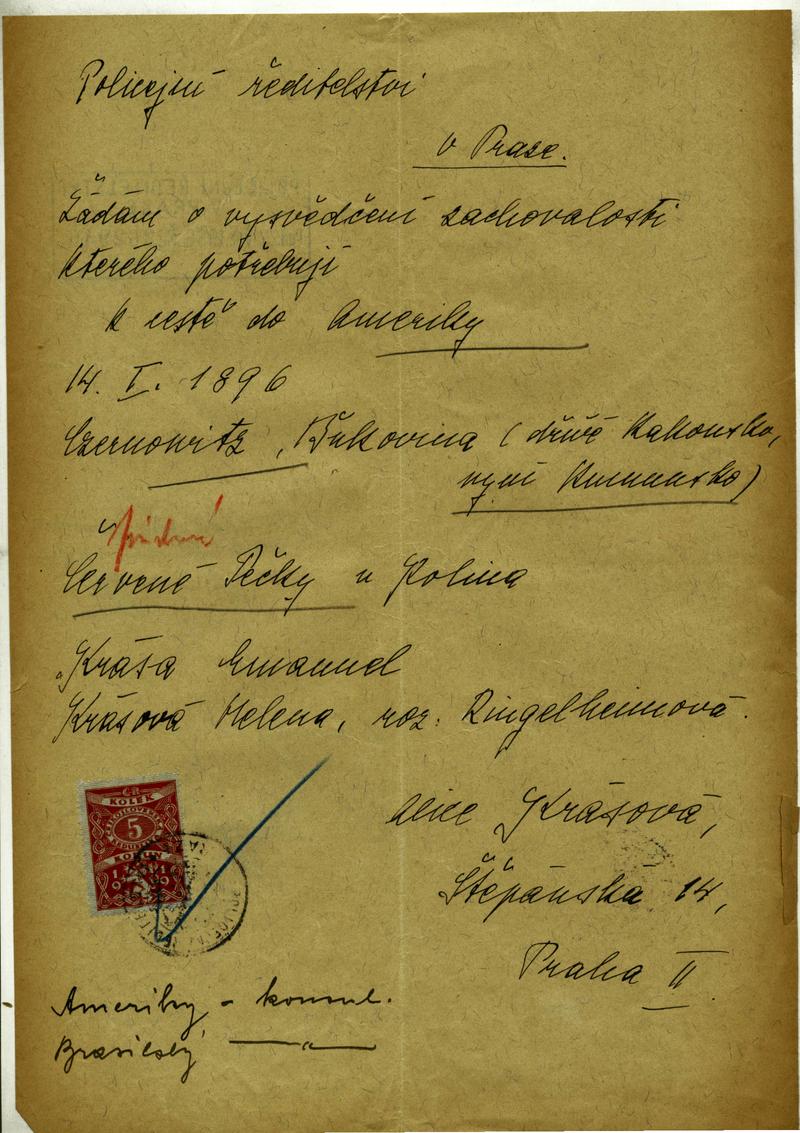 Policejní ředitelství
v Praze.
Žádám o vysvědčení zachovalosti
kterého potřebuji
k cestě do Ameriky
14. I. 1896
Czernowitz, Bukovina (dříve Rakousko,
nyní Rumunsko)
Červené Pečky u Kolína
Krása Emanuel
Krásová Helena, roz. Ringelheimová.
Alice Krásová,
Štěpánská 14,
Praha II
KOLEK
5
KORUN
Ameriky - konsul.
Brasilský — " —